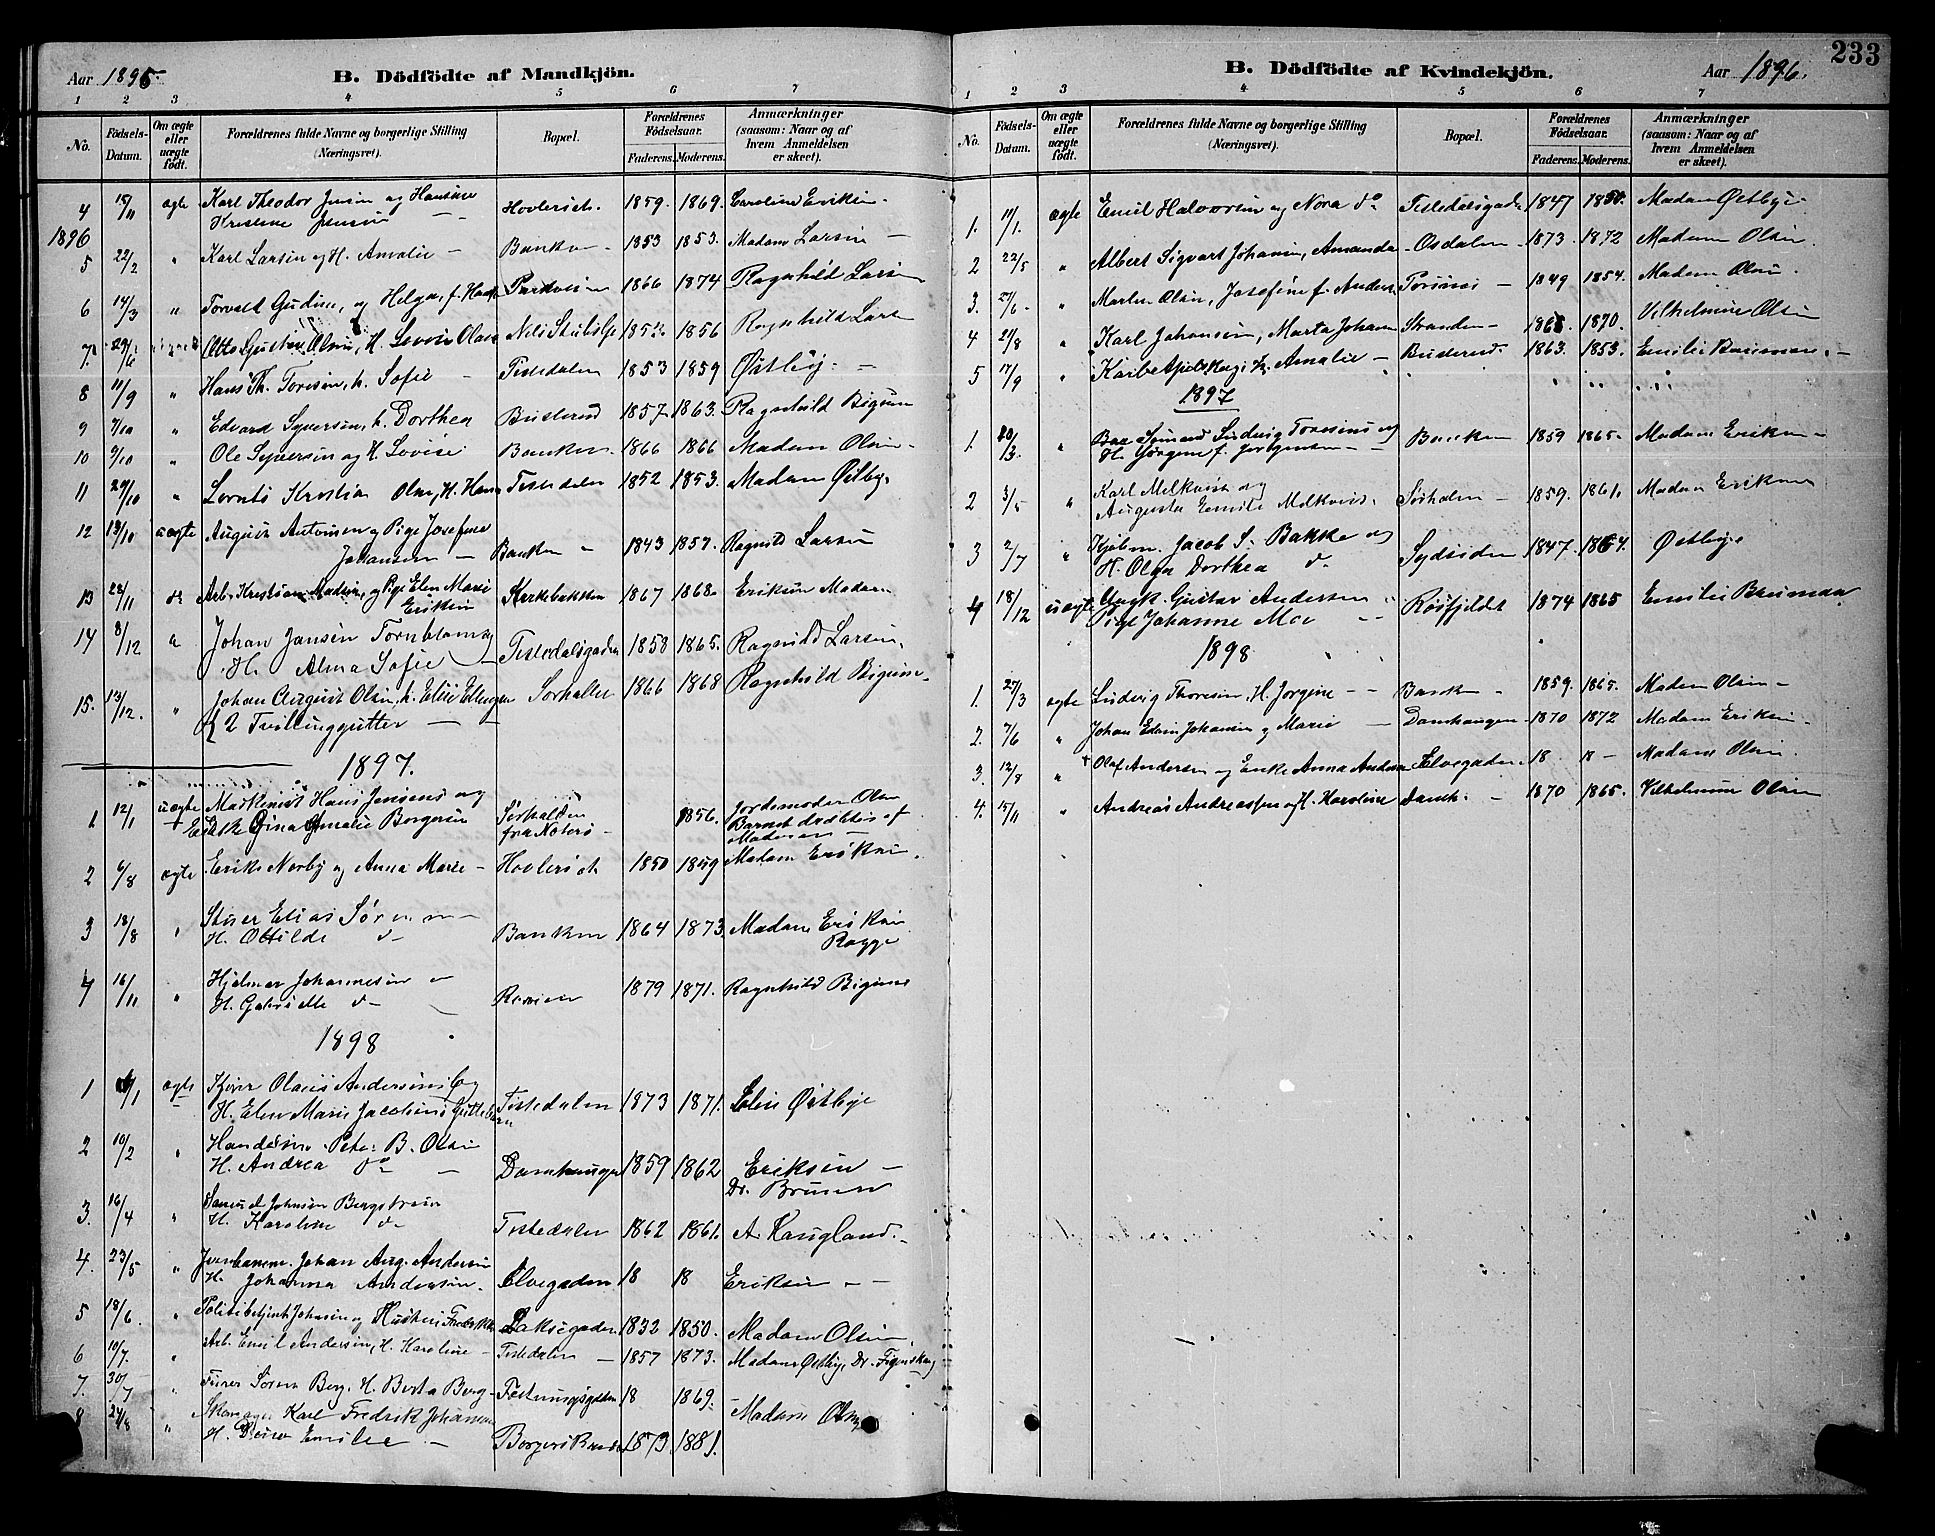 Aar 1895.
B. Dödfödte af Mandkjön.
1 2 3 4 5 6 7
No.
Födsels-Datum.
Om ægte eller uægte födt.
Forældrenes fulde Navne og borgerlige Stilling (Næringsvei).
Bopæl.
Forældrenes Födselsaar.
Faderens. Moderens.
Anmærkninger (saasom: Naar og af hvem Anmeldelsen er skeet).
4 15/11 ægte Karl Theodor Jensen og Hansine
Kristine Jensen — Hovlersich. 1859. 1869. Caroline Eriksen
1896
5 22/2 " Karl Larsen og H. Amalie — Banken — 1853 1853. Madam Larsen —
6 14/3 " Torvald Gudsen, og Helga, f. 1866 1874 Ragnhild Larsen
7. 29/6 Otto Gustav Olsen, H. Lovise Olsen Nels Stubslgt 1852 1856 Ragnhild Larsen
8 11/9 " Hans Th. Toresen, h. Sofie — Tistedalen 1853 1859 Østby —
9 7/10 " Edvard Syversen, h. Dorthea Busterud 1857 1863. Ragnhild Bigum
10 9/10 " Ole Syversen og H. Lovise Banken 1866 1866 Madam Olsen
11 29/10 " Lornts Kristian Olsen, H. Hans Tistedalen 1852 1853. Madam Østby.
12 13/10 uægte August Antonsen og Pige Josefine
Johansen — Banken — 1843 1857. Ragnild Larsen
13 28/11 do Arb. Kristian Madsen, og Pige Elen Marie
Eriksen Kirkebakken 1867 1868. Eriksen Madam
14 8/12 a Johan Jansen Tornblom og
H. Alma Sofie — Tistedalsgaden 1858 1865. Ragnild Larsen,
15. 13/12. " Johan August Olsen, h. Elise Ellingsen Sorhalla 1866 1868 Ragnhild Bigum
{ 2 Tvillinggutter —
1897.
1 12/1 uægte Maskinist Hans Jensens og
Enke Gina Amalie Borgersen Sørhalden
fra Kolerö — 1856. Jordemoder Olsen
Barnet dræbtes af
Moderen —
2 6/8 ægte Erik Norby og Anna Marie — Hovlersich 1850 1859 Madam Eriksen.
3 18/8 " Stuer Elias Sørensen —
H. Ottilde do Banken 1864 1873. Madam Eriksen
Rogge
4 16/11 " Hjelmar Johannesen —
H. Gabrielle do Revsen 1879 1871. Ragnhild Bigum
1898
1 6/1 ægte Kjører Olaus Andersens Og
H. Elen Marie Jacobsens Guttebarn Tistedalen 1873 1871. Elise Østbye
2 10/2 " Handelsm. Peter B. Olsen
H. Andrea do — Damhaugen 1859 1862 Eriksen —
Dr. Brunn
3. 16/4 " Samuel Johnsen Bergstrøm
H. Karoline do Tistedalen 1862 1861. A. Haugland. —
4. 23/5 " Jernbanem. Johan Aug. Andersen
H. Johanna Andersen. Elvegaden 18 18 Eriksen — —
5 18/6. " Politibetjent Johansen og Hustru Fredrikke Laksegaden 1832 1850. Madam Olsen
6 10/7. " Arb. Emil Andersen, H. Karoline — Tistedalen — 1857 1873. Madam Østby, Dr. Figenskog
7. 30/7 " Furer Søren Berg. H. Berta Berg Festningsgaden 18 1869.
8 24/8 " Skomager Karl Fredrik Johansen
H. Emilie — Borgers 1873 1881. Madam Olsen
B. Dödfödte af Kvindekjön.
Aar 1896.
233
1. 2 3 4 5 6 7
No.
Födsels-Datum.
Om ægte eller uægte födt.
Forældrenes fulde Navne og borgerlige Stilling (Næringsvei).
Bopæl.
Forældrenes Födselsaar.
Faderens. Moderens.
Anmærkninger (saasom: Naar og af hvem Anmeldelsen er skeet).
1. 11/1. ægte Emil Halvorsen og Nora do Tistedalsgade 1847 1850. Madam Østbye.
2 22/5 " Albert Sigvart Johansen, Amanda — Osdalen 1873. 1872 Madam Olsen.
3. 27/6 " Martin Olsen, Josefine f. Anders. Torsnes — 1849 1854. Madam Olsen.
4 21/8 " Karl Johansen, Marta Johan Stranden — 1865. 1870. Vilhelmine Olsen
5 17/9 " Amalie — Busterud. 1863. 1853. Emilie Bausman. —
1897
1. 20/3. " Ludvig Toresens og
H. Jørgine f. Jørgensen — — Banken 1859 1865. Madam Eriksen —
2 3/5 " Karl Melkvist og
Augusta Emilie Melkvist. Sørhalen — 1859. 1861. Madam Eriksen
3 2/7 " Kjøbm. Jacob S. Bakke og
H. Olga Dorthea do Sydsiden 1847. 1864. Østbye
4 18/12 uægte Ungk. Gustav Andersen
Pige Johanne Moe — — Røsfjeldet 1874 1865 Emilie Bausman
1898
1. 27/3 ægte Ludvig Thoresen, H. Jørgine — — Banken — 1859. 1865. Madam Olsen —
2. 7/6 " Johan Edvin Johansen og Marie — Damhaugen 1870 1872 Madam Eriksen.
3. 12/8 " Olaf Andersen og Enke Anna Andersen Elvegaden. 18 18 — Madam Olsen.
4. 15/11 " Andreas Andreassen og H. Karoline Damh. — 1870 1865. Vilhelmine Olsen